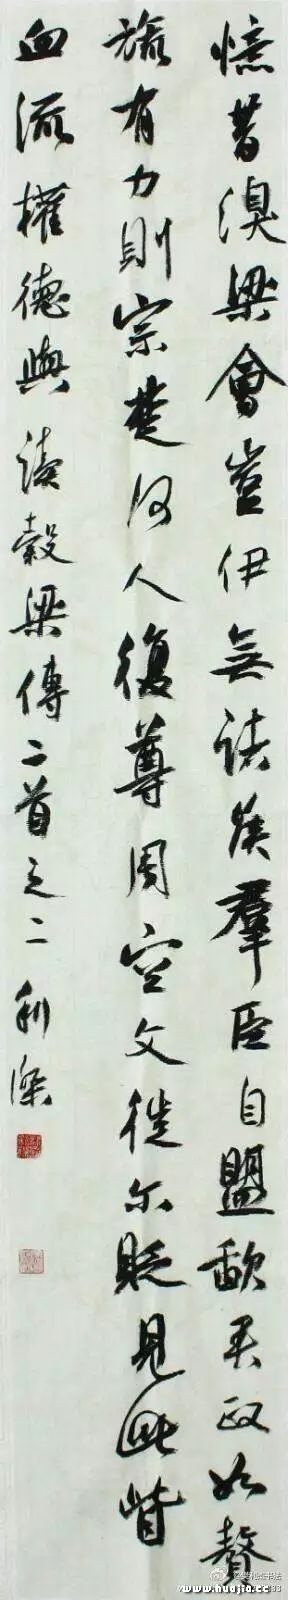 憶昔溴梁會豈伊無諸侯羣臣自盟歃君政如贅
旒有力則宗楚何人復尊周空文徒尔貶見此眥
血流權德輿讀穀梁傳二首之二 利
www.huajia.cc